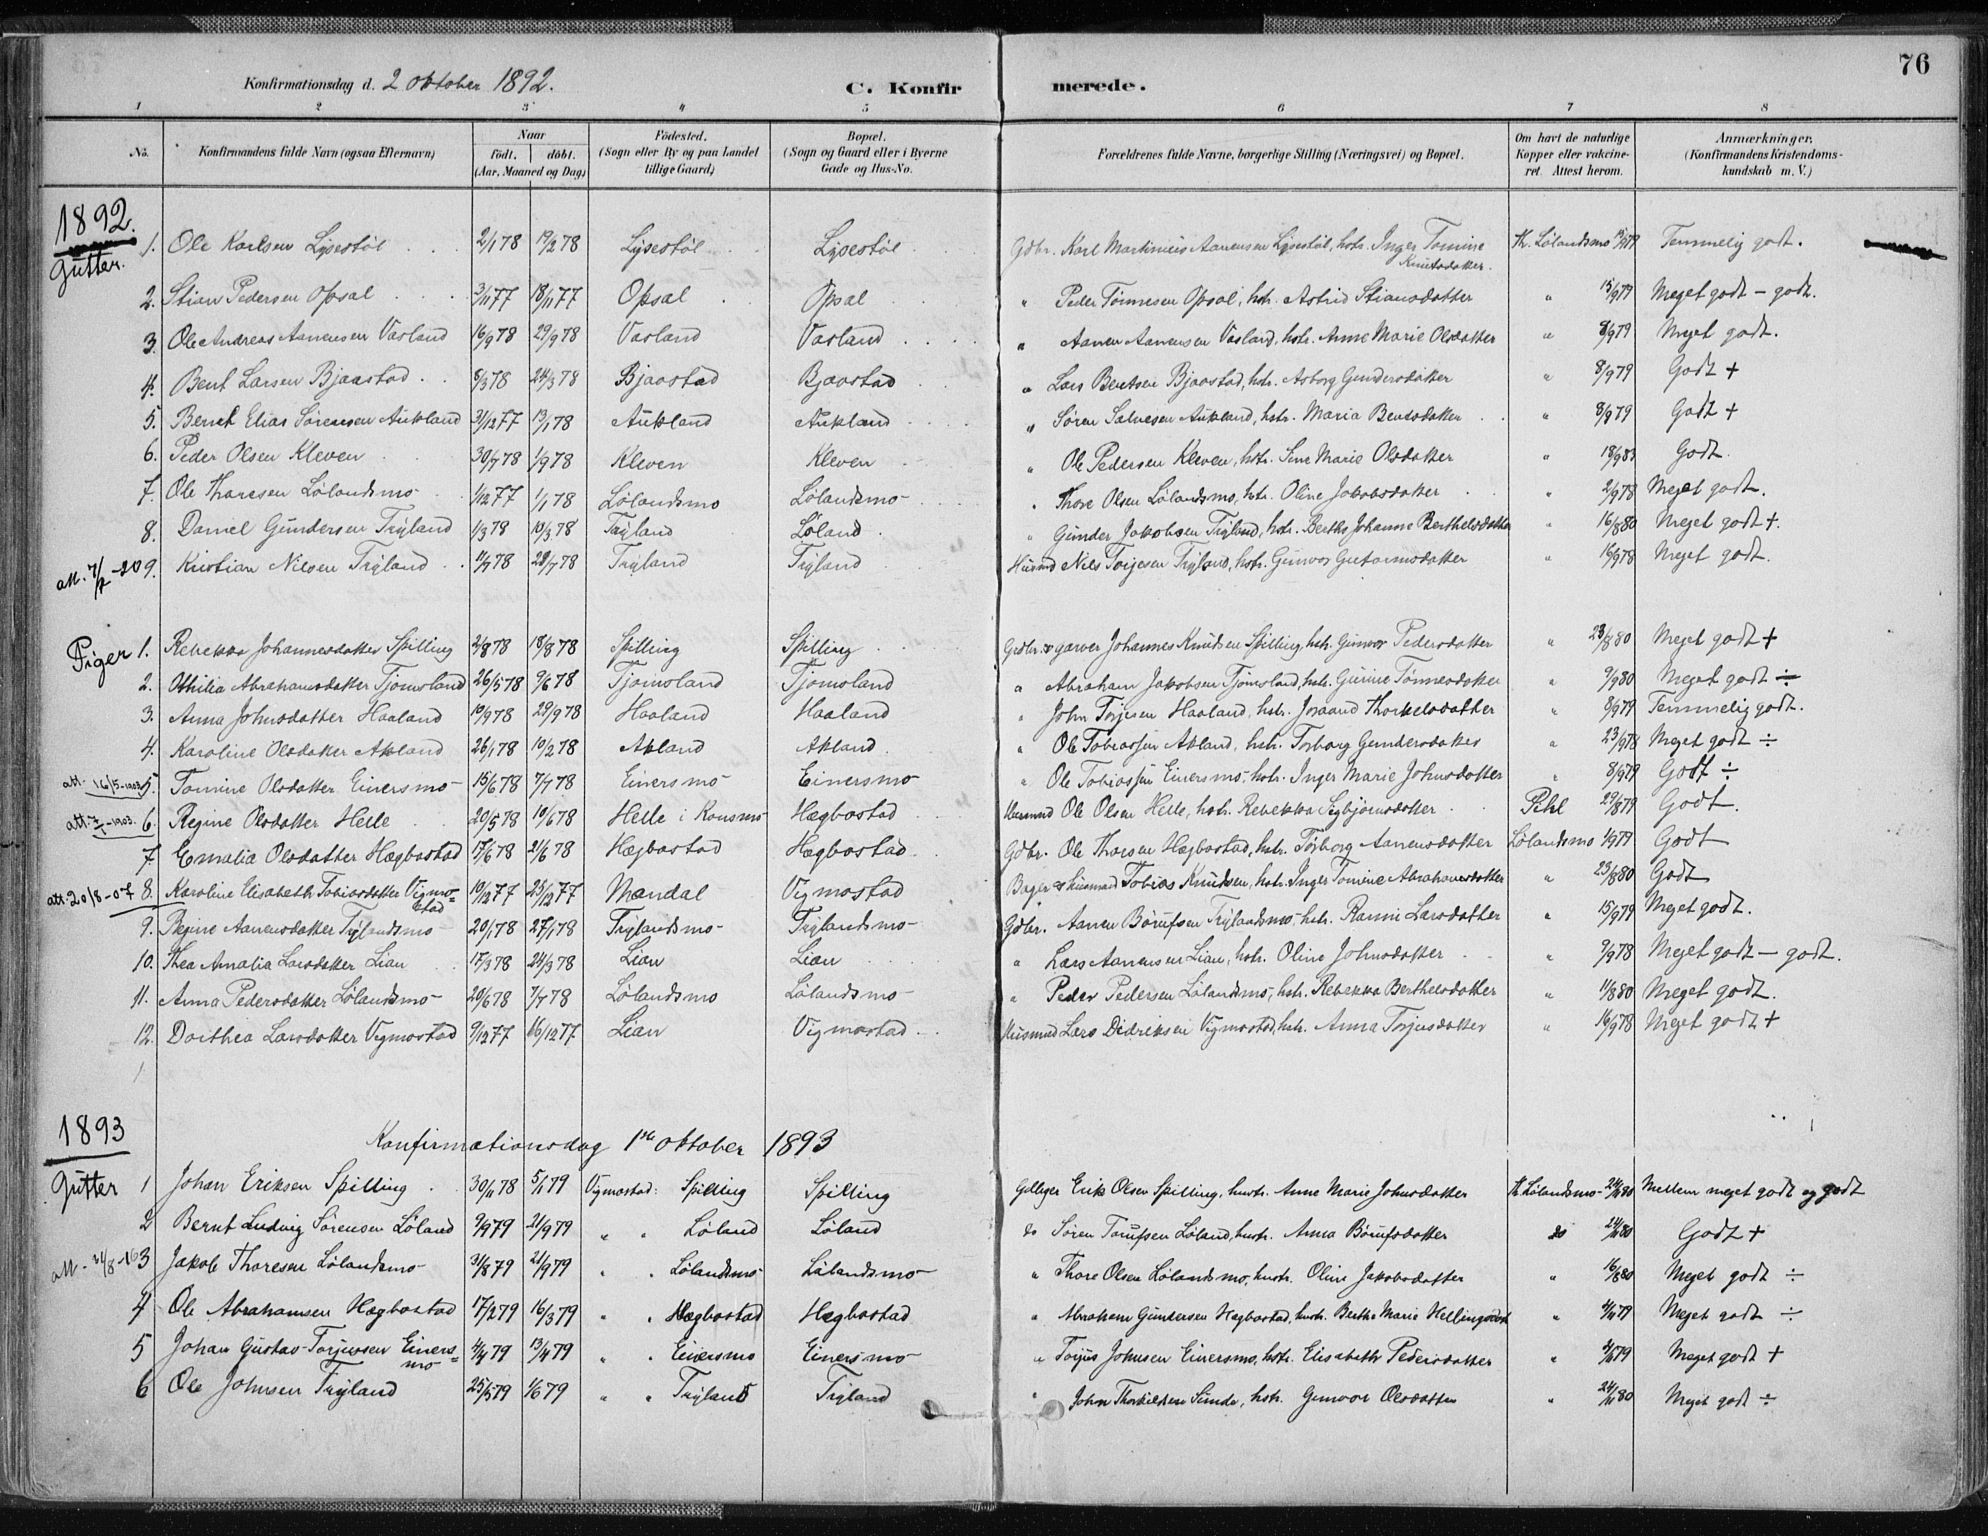 76
Konfirmationsdag d. 2 oktober 1892. C. Konfirmerede.
1 2 3 „ 5 6 7 8
No. Konfirmandens fulde Navn (ogsaa Efternavn) Naar födt. döbt. (Aar, Maaned og Dag) Födested. (Sogn eller By og paa Landet tillige Gaard) Bopæl. (Sogn og Gaard eller i Byerne Gade og Hus-No. Forældrenes fulde Navne, borgerlige Stilling (Næringsvei) og Bopæl. Om havt de naturlige Kopper eller vakcineret. Attest herom. Anmærkninger. (Konfirmandens Kristendomskundskab m. V.)
1892.
Gutter.
1. Ole Karlsen Lysestøl 2/1 78 19/2 78 Lysestøl Lysestøl Gdbr. Karl Martinius Aanensen Lysestøl, hstr. Inger Tomine Knutsdatter. Th. Lølandsmo 15/9 79 Temmelig godt.
2. Stian Pedersen Opsal 3/11 77 18/11 77 Opsal Opsal „ Peder Tønnesen Opsal, hstr. Astrid Stiansdatter „ 15/9 79 Meget godt – godt.
3. Ole Andreas Aanensen Vasland 16/9 78 29/9 78 Vasland Vasland „ Aanen Aanensen Vasland, hstr. Anne Marie Olsdatter „ 8/9 79 Meget godt.
4. Bent Larsen Bjaastad 8/3 78 24/3 78 Bjaastad Bjaastad „ Lars Bentsen Bjaastad, hstr. Asborg Gundersdatter „ 8/9 79 Godt +
5. Bernt Elias Sørensen Aukland 31/12 77 13/1 78 Aukland Aukland „ Søren Salvesen Aukland, hstr. Maria Bentsdatter „ 8/9 79 Godt +
6. Peder Olsen Kleven 30/7 78 1/9 78 Kleven Kleven „ Ole Pedersen Kleven, hstr. Sine Marie Olsdatter „ 18/9 83 Godt.
7. Ole Thoresen Lølandsmo 1/12 77 1/1 78 Lølandsmo Lølandsmo „ Thore Olsen Lølandsmo, hstr. Oline Jakobsdatter „ 2/9 78 Meget godt.
8. Daniel Gundersen Tryland 1/3 78 10/3 78 Tryland Løland „ Gunder Jakobsen Tryland, hstr. Berthe Johanne Berthelsdatter „ 16/8 80 Meget godt +.
att. 7/2-20 9. Kristian Nilsen Tryland 11/7 78 28/7 78 Tryland Tryland Husmd Nils Torjesen Tryland, hstr. Gunvor Guttormsdatter „ 16/9 78 Meget godt.
Piger 1. Rebekka Johannesdatter Spilling 2/8 78 18/8 78 Spilling Spilling Gdbr. & garver Johannes Knudsen Spilling, hstr. Gunvor Pedersdatter „ 23/8 80 Meget godt +
2. Othilia Abrahamsdatter Tjomsland 26/5 78 9/6 78 Tjomsland Tjomsland „ Abraham Jakobsen Tjomsland, hstr. Gurine Tønnesdatter „ 9/9 80 Meget godt ÷
3. Anna Johnsdatter Haaland 10/9 78 29/9 78 Haaland Haaland „ John Torjesen Haaland, hstr. Joraand Thorkelsdatter „ 8/9 79 Temmelig godt.
4. Karoline Olsdatter Akland 26/1 78 10/2 78 Akland Akland „ Ole Tobiassen Akland, hstr. Torborg Gundersdatter „ 23/9 78 Meget godt ÷
att. 16/5-1903 5. Tomine Olsdatter Einersmo 15/6 78 7/7 78 Einersmo Einersmo „ Ole Tobiassen Einersmo, hstr. Inger Marie Johnsdatter „ 8/9 79 Godt ÷
att. 7/1-1903. 6. Regine Olsdatter Helle 20/5 78 10/6 78 Helle i Konsmo Hægbostad Husmand Ole Olsen Helle, hstr. Rebekka Sigbjørnsdatter Pihl 29/8 79 Godt.
7 Emalia Olsdatter Hægbostad 17/6 78 21/6 78 Hægbostad Hægbostad Gdbr. Ole Thorsen Hægbostad, hstr. Torborg Aanensdatter Lølandsmo 1/9 79 Godt
att. 20/8-07 8. Karoline Elisabeth Tobiasdatter Vigmostad 10/12 77 25/12 77 Mandal Vigmostad Bager & husmand Tobias Knudsen, hstr. Inger Tomine Abrahamsdatter „ 23/8 80 Godt
9. Regine Aanensdatter Trylandsmo 20/1 78 27/1 78 Trylandsmo Trylandsmo Gdbr. Aanen Børufsen Trylandsmo, hstr. Ranni Larsdatter „ 15/9 79 Meget godt.
10. Thea Amalia Larsdatter Lian 17/3 78 24/3 78 Lian Lian „ Lars Aanensen Lian, hstr. Oline Johnsdatter „ 9/9 78 Meget godt – godt.
11. Anna Pedersdatter Lølandsmo 20/6 78 7/7 78 Lølandsmo Lølandsmo „ Peder Pedersen Lølandsmo, hstr. Rebekka Berthelsdatter „ 11/8 80 Meget godt.
12. Dorthea Larsdatter Vigmostad 9/12 77 16/12 77 Lian Vigmostad Husmnd Lars Didriksen Vigmostad, hstr. Anna Torjusdatter „ 16/9 78 Meget godt +
1893
Konfirmationsdag 1ste oktober 1893
Gutter 1 Johan Eriksen Spilling 30/11 78 5/1 79 Vigmostad: Spilling Spilling Erik Olsen Spilling, hustr. Anne Marie Johnsdatter Th. Lølandsmo 24/11 80 Mellem meget godt og godt
2 Bernt Ludvig Sørensen Løland 9/9 79 21/9 79 „ „ Løland Løland do Søren Torufsen Løland, hustr. Anna Børufsdatter do 24/11 80 Godt +
att. 31/8-16 3 Jakob Thoresen Lølandsmo 31/8 79 21/9 79 „ „ Lølandsmo Lølandsmo „ Thore Olsen Lølandsmo, hustr. Oline Jakobsdatter „ 16/8 80 Meget godt ÷
4 Ole Abrahamsen Hægbostad 17/2 79 16/3 79 „ „ Hægbostad Hægbostad „ Abraham Gundersen Hægbostad, hustr. Berthe Marie Hellingsdatt „ 4/11 79 Meget godt ÷
5 Johan Gustav Torjussen Einersmo 4/4 79 13/4 79 „ „ Einersmo Einersmo „ Torjus Johnsen Einersmo, hstr. Elisabeth Pedersdatter „ 4/11 79 Meget godt +
6 Ole Johnsen Tryland 25/5 79 1/6 79 „ „ Tryland Tryland „ John Thorkildsen hstr. Gunvor Olsdatter „ 24/11 80 Meget godt ÷